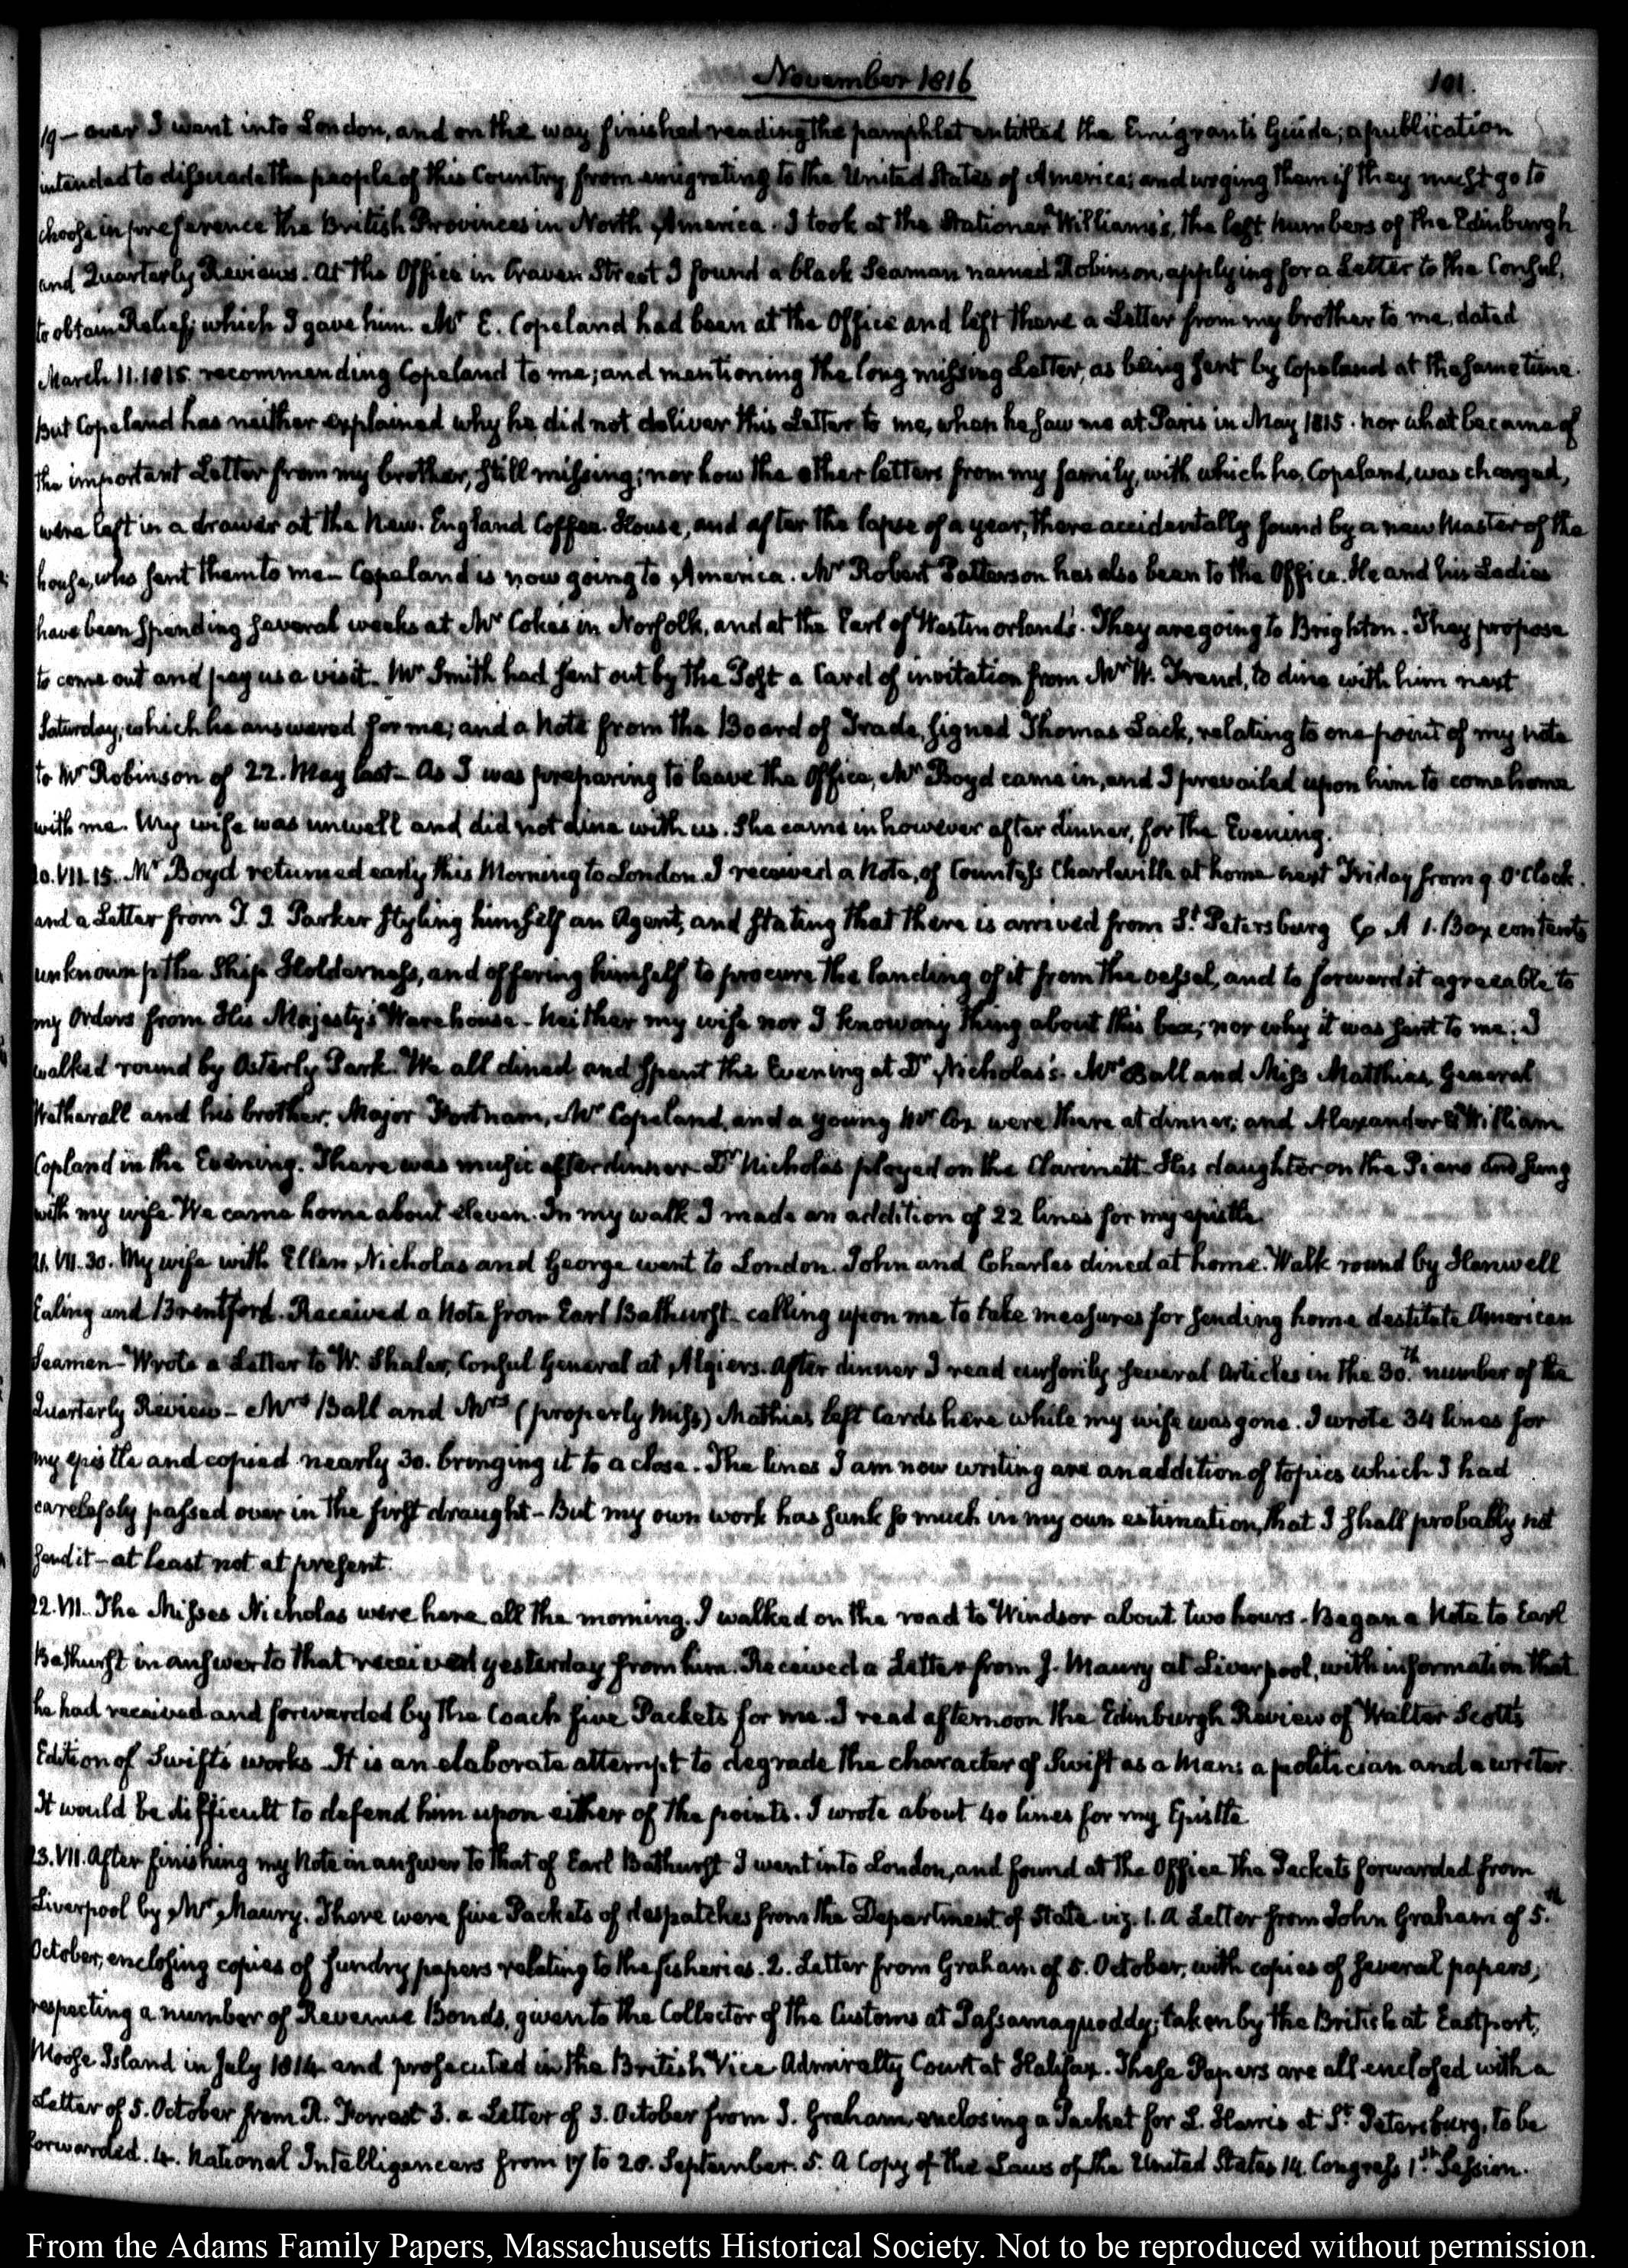 November 1816
101.
19 — over I went into London, and on the way finished reading the pamphlet entitled the Emigrants Guide; a publication
intended to dissuade the people of this Country from emigrating to the United States of America; and urging them if they must go to
choose in preference the British Provinces in North America. I took at the Stationer Williams's, the last numbers of the Edinburgh
and Quarterly Reviews. At the Office in Craven Street I found a black Seaman named Robinson, applying for a Letter to the Consul,
to obtain Relief; which I gave him. Mr E. Copeland had been at the Office and left there a Letter from my brother to me, dated
March 11. 1815. recommending Copeland to me; and mentioning the long missing Letter, as being sent by Copeland at the same time.
But Copeland has neither explained why he did not deliver this Letter to me, when he saw me at Paris in May 1815. nor what became of
the important Letter from my brother, still missing; nor how the other letters from my family, with which he, Copeland, was charged,
were left in a drawer at the New England Coffee House, and after the lapse of a year, there accidentally found by a new Master of the
house, who sent them to me — Copeland is now going to America. Mr Robert Patterson has also been to the Office. He and his Ladies
have been spending several weeks at Mr Coke's in Norfolk, and at the Earl of Westmorland's. They are going to Brighton. They propose
to come out and pay us a visit. Mr Smith had sent out by the Post a Card of invitation from Mr W. Frend, to dine with him next
Saturday, which he answered for me; and a Note from the Board of Trade, signed Thomas Lack, relating to one point of my note
to Mr Robinson of 22. May last — As I was preparing to leave the Office, Mr Boyd came in, and I prevailed upon him to come home
with me. My wife was unwell and did not dine with us. She came in however after dinner, for the Evening.
20. VII. 15. Mr Boyd returned early this Morning to London. I received a Note, of Countess Charleville at home next Friday from 9. O'Clock.
and a Letter from T. J. Parker styling himself an Agent, and stating that there is arrived from St. Petersburg A 1. Box contents
unknown p the Ship Holderness, and offering himself to procure the landing of it from the vessel, and to forward it agreeable to
my Orders from His Majesty's Warehouse — Neither my wife nor I know any thing about this box; nor why it was sent to me. I
walked round by Osterly Park. We all dined and spent the Evening at Dr Nicholas's. Mrs Ball and Miss Matthias, General
Wetherall and his brother, Major Fortnam, Mr Copeland, and a young Mr Cox were there at dinner; and Alexander & William
Copland in the Evening. There was music after dinner — Dr Nicholas played on the Clarinett. His daughter on the Piano and sung
with my wife. We came home about eleven. In my walk I made an addition of 22 lines for my epistle.
21. VII. 30. My wife with Ellen Nicholas and George went to London. John and Charles dined at home. Walk round by Hanwell
Ealing and Brentford. Received a Note from Earl Bathurst — calling upon me to take measures for sending home destitute American
Seamen — Wrote a Letter to W. Shaler, Consul General at Algiers. After dinner I read cursorily several Articles in the 30th. number of the
Quarterly Review — Mrs Ball and Mrs (properly Miss) Mathias left Cards here while my wife was gone. I wrote 34 lines for
my epistle and copied nearly 30. bringing it to a close. The lines I am now writing are an addition of topics which I had
carelessly passed over in the first draught — But my own work has sunk so much in my own estimation, that I shall probably not
send it — at least not at present.
22. VII. The Misses Nicholas were here all the morning. I walked on the road to Windsor about two hours. Began a Note to Earl
Bathurst in answer to that received yesterday from him. Received a Letter from J. Maury at Liverpool, with information that
he had received and forwarded by the Coach five Packets for me. I read afternoon the Edinburgh Review of Walter Scott's
Edition of Swift's works. It is an elaborate attempt to degrade the character of Swift as a Man; a politician and a writer.
It would be difficult to defend him upon either of the points. I wrote about 40 lines for my Epistle
23. VII. After finishing my Note in answer to that of Earl Bathurst I went into London, and found at the Office the Packets forwarded from
Liverpool by Mr Maury. There were five Packets of despatches from the Department of State viz. 1. A Letter from John Graham of 5th.
October, enclosing copies of sundry papers relating to the fisheries. 2. Letter from Graham of 5. October, with copies of several papers,
respecting a number of Revenue Bonds, given to the Collector of the Customs at Passamaquoddy; taken by the British at Eastport,
Moose Island in July 1814 and prosecuted in the British Vice Admiralty Court at Halifax. These Papers are all enclosed with a
Letter of 5. October from R. Forrest 3. a Letter of 3. October from J. Graham, enclosing a Packet for L. Harris at St. Petersburg, to be
forwarded. 4. National Intelligencers from 17 to 20. September. 5. A Copy of the Laws of the United States 14. Congress 1st. Session.
From the Adams Family Papers, Massachusetts Historical Society. Not to be reproduced without permission.